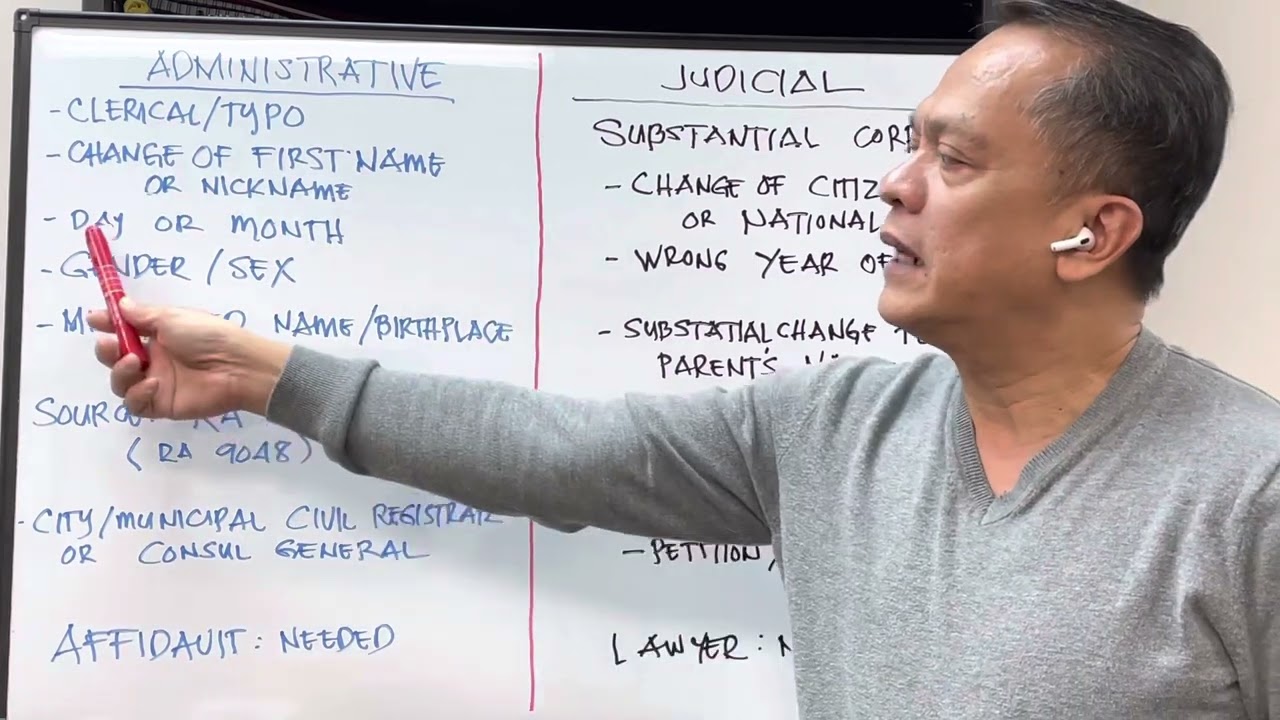 ADMINISTRATIVE
- CLERICAL/TYPO
- CHANGE OF FIRST NAME
OR NICKNAME
- DAY OR MONTH
- GENDER / SEX
- NAME/BIRTHPLACE
(RA 9048)
- CITY/MUNICIPAL CIVIL REGISTRAR
OR CONSUL GENERAL
AFFIDAVIT: NEEDED
JUDICIAL
SUBSTANTIAL
- CHANGE OF
OR
- WRONG YEAR OF
- SUBSTATIAL CHANGE
PARENT'S
- PETITION/
LAWYER: